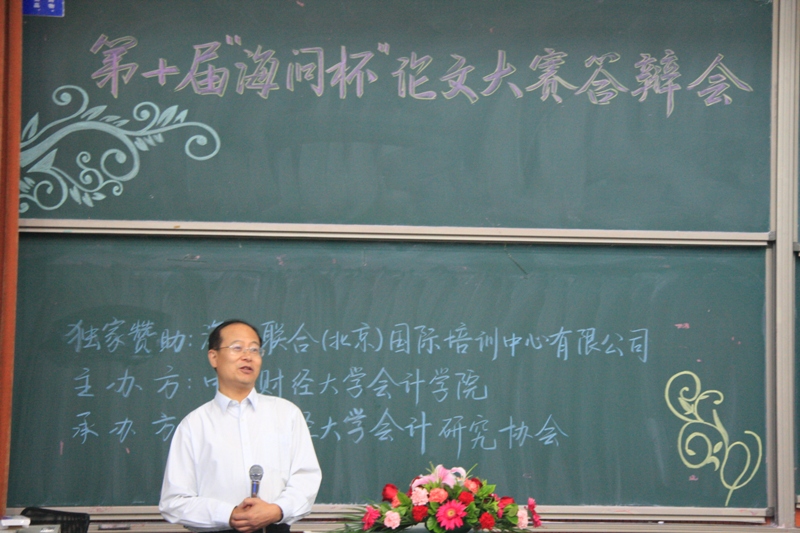 第十届"海问杯"论文大赛答辩会
独家赞助:海 联合(北京)国际培训中心有限公司
主办方:中 财经大学会计学院
承办方 经大学会计研究协会